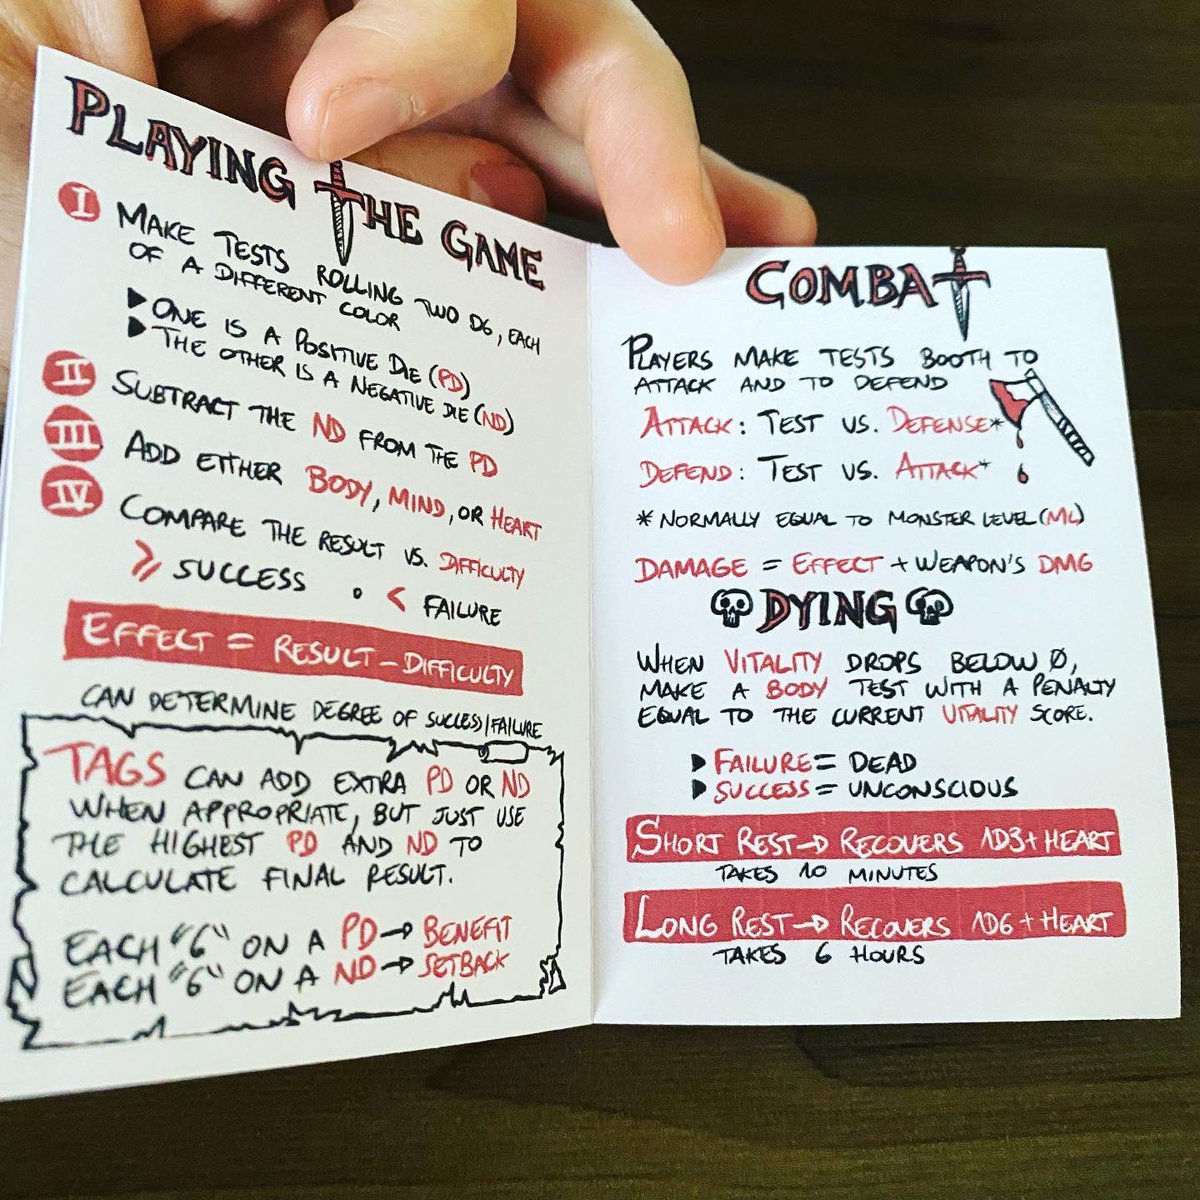 PLAYING THE GAME
I MAKE TESTS ROLLING TWO D6, EACH
OF A DIFFERENT COLOR
▶ ONE IS A POSITIVE DIE (PD)
▶ THE OTHER IS A NEGATIVE DIE (ND)
II SUBTRACT THE ND FROM THE PD
III ADD EITHER BODY, MIND, OR HEART
IV COMPARE THE RESULT VS. DIFFICULTY
≥ SUCCESS • < FAILURE
EFFECT = RESULT - DIFFICULTY
CAN DETERMINE DEGREE OF SUCCESS/FAILURE
TAGS CAN ADD EXTRA PD OR ND
WHEN APPROPRIATE, BUT JUST USE
THE HIGHEST PD AND ND TO
CALCULATE FINAL RESULT.
EACH "6" ON A PD → BENEFIT
EACH "6" ON A ND → SETBACK
COMBAT
PLAYERS MAKE TESTS BOOTH TO
ATTACK AND TO DEFEND
ATTACK: TEST VS. DEFENSE*
DEFEND: TEST VS. ATTACK*
* NORMALLY EQUAL TO MONSTER LEVEL (ML)
DAMAGE = EFFECT + WEAPON'S DMG
DYING
WHEN VITALITY DROPS BELOW 0,
MAKE A BODY TEST WITH A PENALTY
EQUAL TO THE CURRENT VITALITY SCORE.
▶ FAILURE = DEAD
▶ SUCCESS = UNCONSCIOUS
SHORT REST → RECOVERS 1D3 + HEART
TAKES 10 MINUTES
LONG REST → RECOVERS 1D6 + HEART
TAKES 6 HOURS